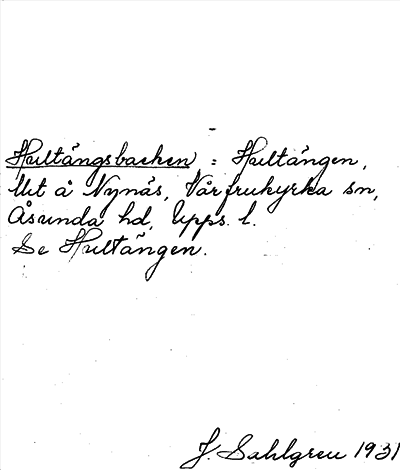 Hultängsbacken = Hultängen,
Utt å Nynäs, Vårfrukyrka sn,
Åsunda hd, Upps. l.
Se Hultängen.
J. Sahlgren 1931